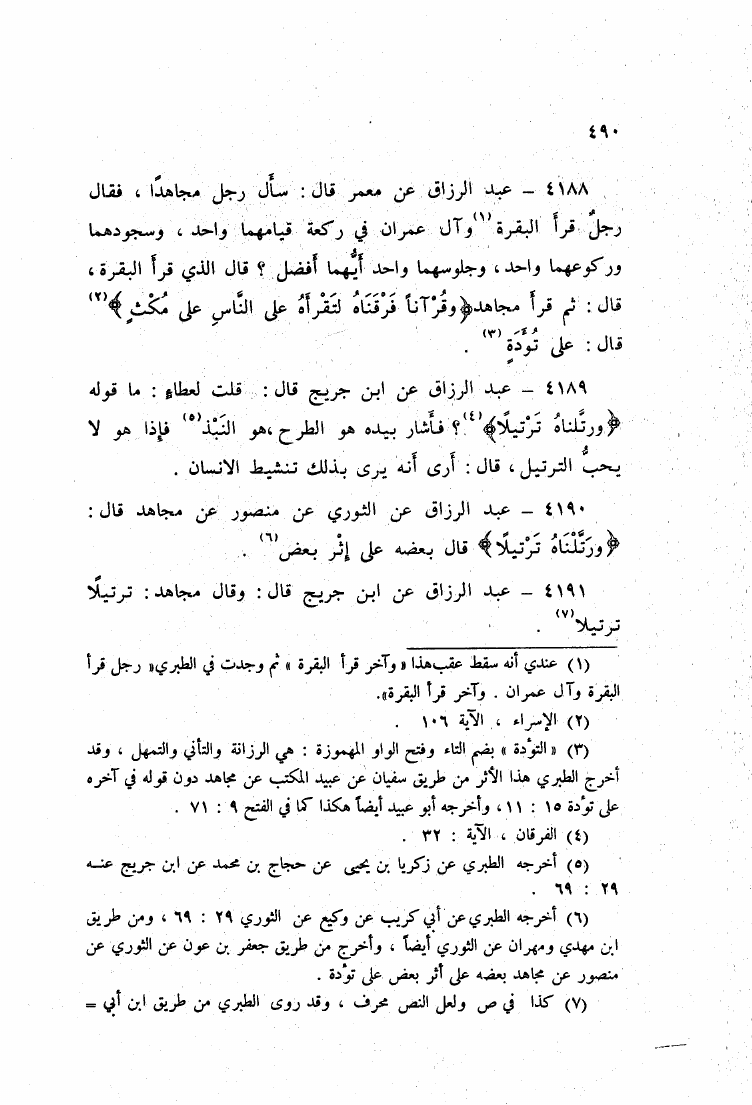 ٤٩٠
٤١٨٨ – عبد الرزاق عن معمر قال : سأل رجل مجاهدًا ، فقال
رجلٌ قرأ البقرة (١) وآل عمران في ركعة قيامهما واحد ، وسجودهما
وركوعهما واحد ، وجلوسهما واحد أيُّهما أفضل ؟ قال الذي قرأ البقرة ،
قال : ثم قرأ مجاهد ﴿وقُرْآناً فَرَقنَاهُ لتَقْرأهُ على النَّاسِ على مُكْثٍ﴾ (٢)
قال : على تُؤَدَةٍ (٣) .
٤١٨٩ – عبد الرزاق عن ابن جريج قال : قلت لعطاءٍ : ما قوله
﴿ورتَّلناهُ تَرْتيلًا﴾ (٤) ؟ فأشار بيده هو الطرح ،هو النَبْذ (٥) فإذا هو لا
يحبُّ الترتيل ، قال : أرى أنه يرى بذلك تنشيط الانسان .
٤١٩٠ – عبد الرزاق عن الثوري عن منصور عن مجاهد قال :
﴿ورَتَّلْنَاهُ تَرْتيلًا﴾ قال بعضه على إثْر بعض (٦) .
٤١٩١ – عبد الرزاق عن ابن جريج قال : وقال مجاهد : ترتيلًا
ترتيلا (٧) .
(١) عندي أنه سقط عقب هذا « وآخر قرأ البقرة » ثم وجدت في الطبري« رجل قرأ
البقرة وآل عمران . وآخر قرأ البقرة».
(٢) الإسراء ، الآية ١٠٦ .
(٣) « التؤدة » بضم التاء وفتح الواو المهموزة : هي الرزانة والتأني والتمهل ، وقد
أخرج الطبري هذا الأثر من طريق سفيان عن عبيد المكتب عن مجاهد دون قوله في آخره
على تؤدة ١٥ : ١١ ، وأخرجه أبو عبيد أيضاً هكذا كما في الفتح ٩ : ٧١ .
(٤) الفرقان ، الآية : ٣٢ .
(٥) أخرجه الطبري عن زكريا بن يحيى عن حجاج بن محمد عن ابن جريج عنه
٢٩ : ٦٩ .
(٦) أخرجه الطبري عن أبي كريب عن وكيع عن الثوري ٢٩ : ٦٩ ، ومن طريق
ابن مهدي ومهران عن الثوري أيضاً ، وأخرج من طريق جعفر بن عون عن الثوري عن
منصور عن مجاهد بعضه على أثر بعض على تؤدة .
(٧) كذا في ص ولعل النص محرف ، وقد روى الطبري من طريق ابن أبي =